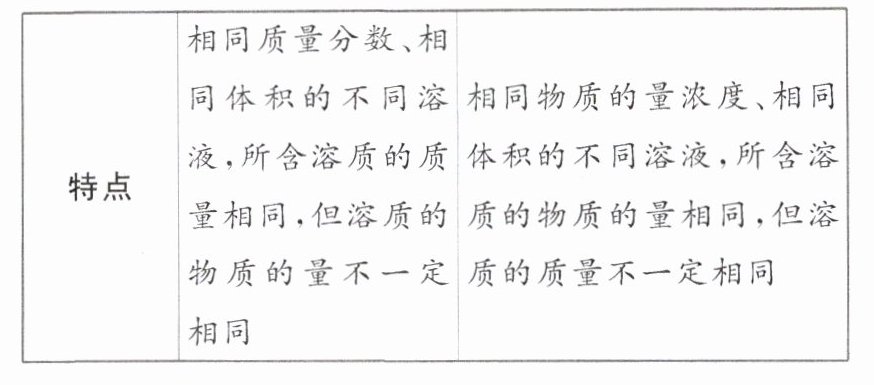 特点
相同质量分数、相
同体积的不同溶
液,所含溶质的质
量相同,但溶质的
物质的量不一定
相同
相同物质的量浓度、相同
体积的不同溶液,所含溶
质的物质的量相同,但溶
质的质量不一定相同